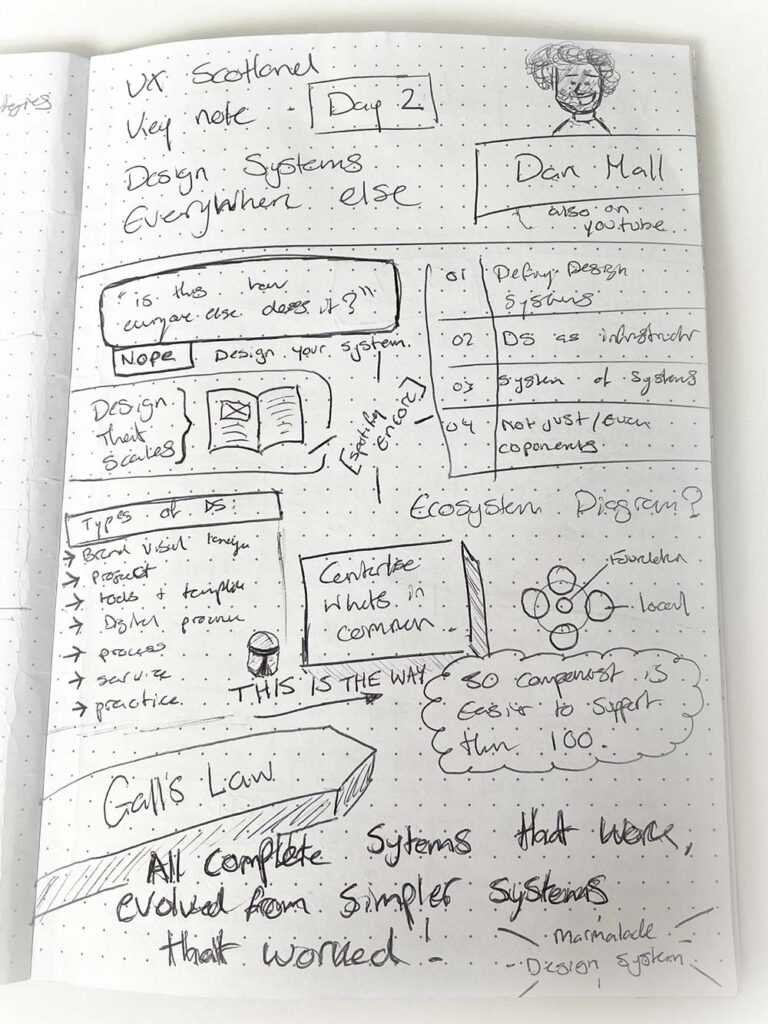 UX Scotland
Key note - Day 2
Design Systems
Everywhere else
Dan Mall
also on
youtube
"is this how
everyone else does it?"
Nope. Design your system.
01 Defing Design
Systems
02 DS as infrastructr
03 System of Systems
04 Not just/even
coponents
Design
that
scales
[Spotify
Encore]
Ecosystem Diagram?
Types of DS:
→ Brand visul
→ project
→ tools + template
→ Digital
→ process
→ service
→ practice
Centerlise
whats in
common
THIS IS THE WAY
Foundation
Local
50 componest is
Easier to support
than 100.
Gall's Law
All complete Sytems that work,
evolved from simpler systems
that worked!
Marmalade
Design system